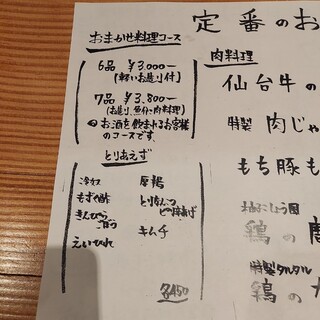 定番のお
おまかせ料理コース
6品 ¥3,000ー
(軽いお造り付)
7品 ¥3,800ー
(お造り、魚介、肉料理)
お酒を飲まれるお客様
のコースです。
とりあえず
冷奴
もずく酢
きんぴら
ごぼう
えいひれ
厚揚
とりなんこつ
キムチ
各450
肉料理
仙台牛の
特製 肉じゃ
もち豚も
鶏の
特製タルタル
鶏の